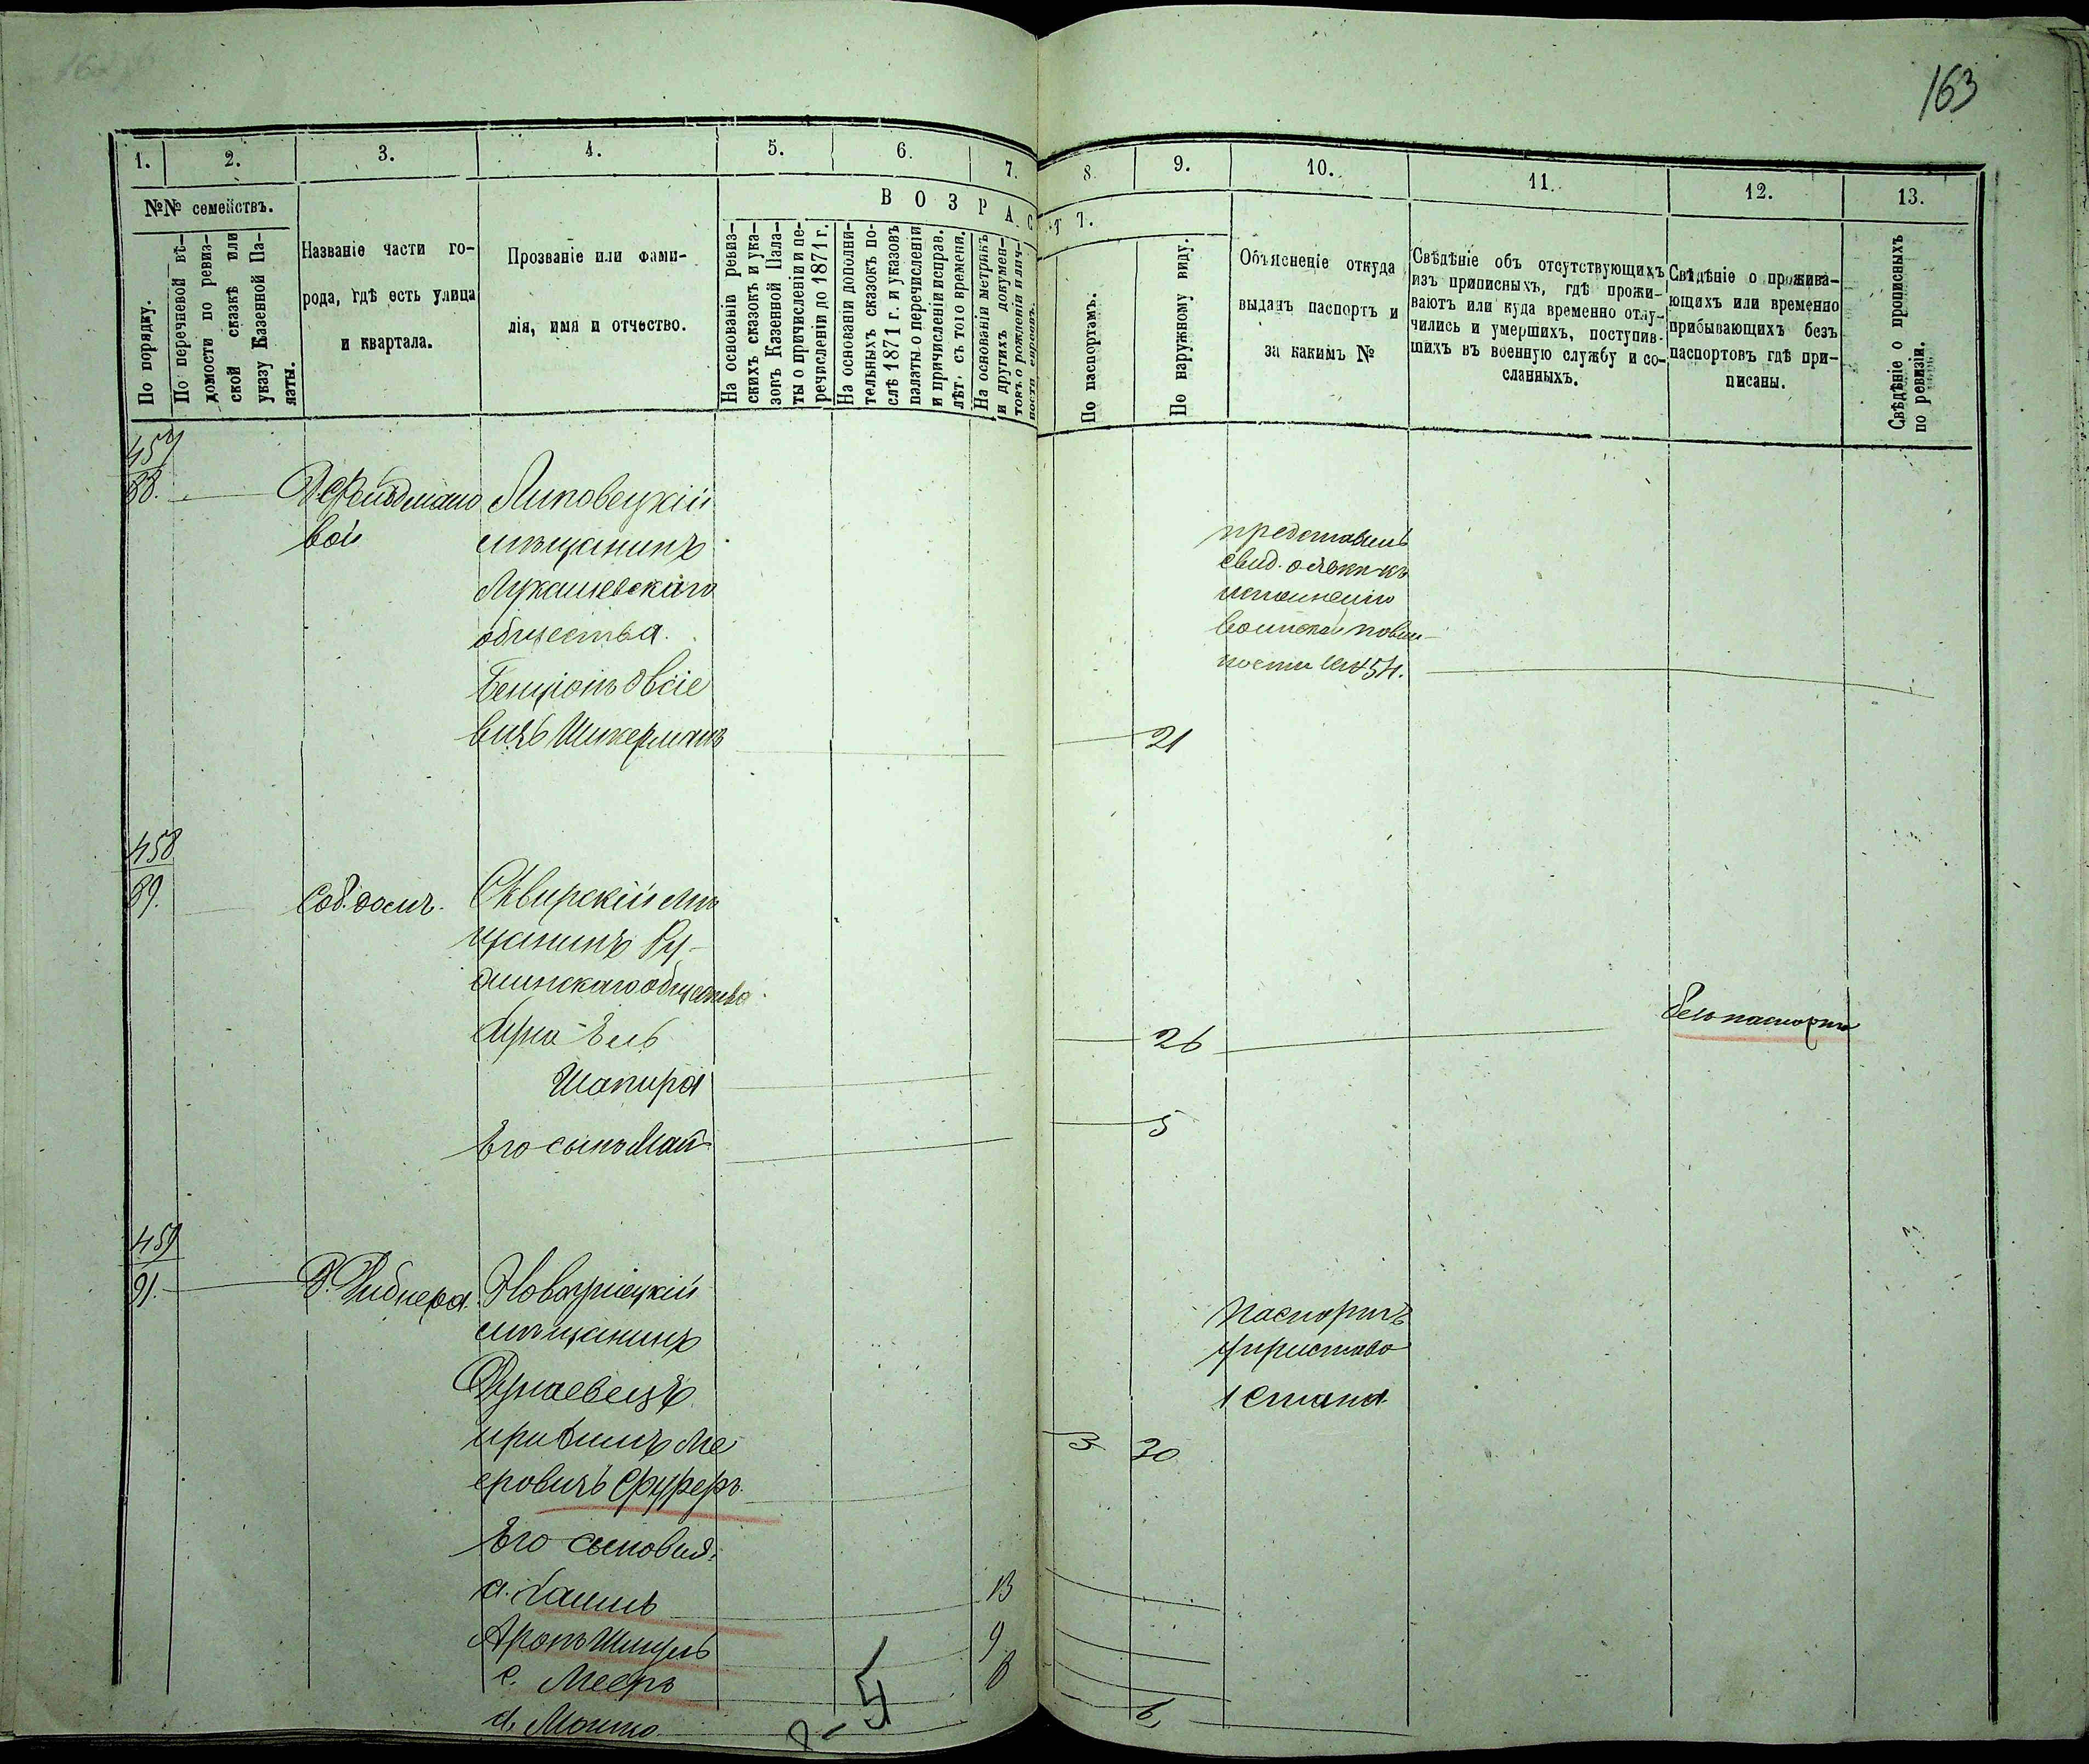 163
1.
2.
3.
4.
5.
6.
7.
8.
9.
10.
11.
12.
13.
№№ семействъ.
По порядку.
По перечневой вѣ-
домости по ревиз-
ской сказкѣ или
указу Казенной Па-
латы.
Названіе части го-
рода, гдѣ есть улица
и квартала.
Прозваніе или фами-
лія, имя и отчество.
ВОЗРАСТ
На основаніи ревиз-
скихъ сказокъ и ука-
зовъ Казенной Пала-
ты о причисленіи и пе-
речисленіи до 1871 г.
На основаніи дополни-
тельныхъ сказокъ по-
слѣ 1871 г. и указовъ
палаты о перечисленіи
и причисленіи исправ.
лѣт. съ того времени.
На основаніи метрикъ
и другихъ докумен-
товъ о рожденіи и лич-
ности евреевъ.
По паспортамъ.
По наружному виду.
Объясненіе откуда
выданъ паспортъ и
за какимъ №
Свѣдѣніе объ отсутствующихъ
изъ приписныхъ, гдѣ прожи-
ваютъ или куда временно отлу-
чились и умершихъ, поступив-
шихъ въ военную службу и со-
сланныхъ.
Свѣдѣніе о прожива-
ющихъ или временно
прибывающихъ безъ
паспортовъ гдѣ при-
писаны.
Свѣдѣніе о прописныхъ
по ревизіи.
457
88.
Д. Фейдмано
вой
Липовецкій
мѣщанинъ
Лукашевскаго
общества.
Бенціонъ Овсіе
вичъ Шикерманъ
21
представилъ
свид. о явкѣ къ
исполненію
воинской повин-
ности
458
89.
Соб. домъ.
Сквирскій мѣ
щанинъ Ру-
жинскаго общества
Шапира
26
безъ паспорта
Его сынъ
5
459
91.
Новоушицкій
мѣщанинъ
Дунаевецъ
Ме
еровичъ Фуферъ
3 30
Паспортъ
у пристава
1 стана
Его сыновья:
а. Хаимъ 13
Аронъ Шмуль 9
с. Мееръ 8
д. Мошко 6
5